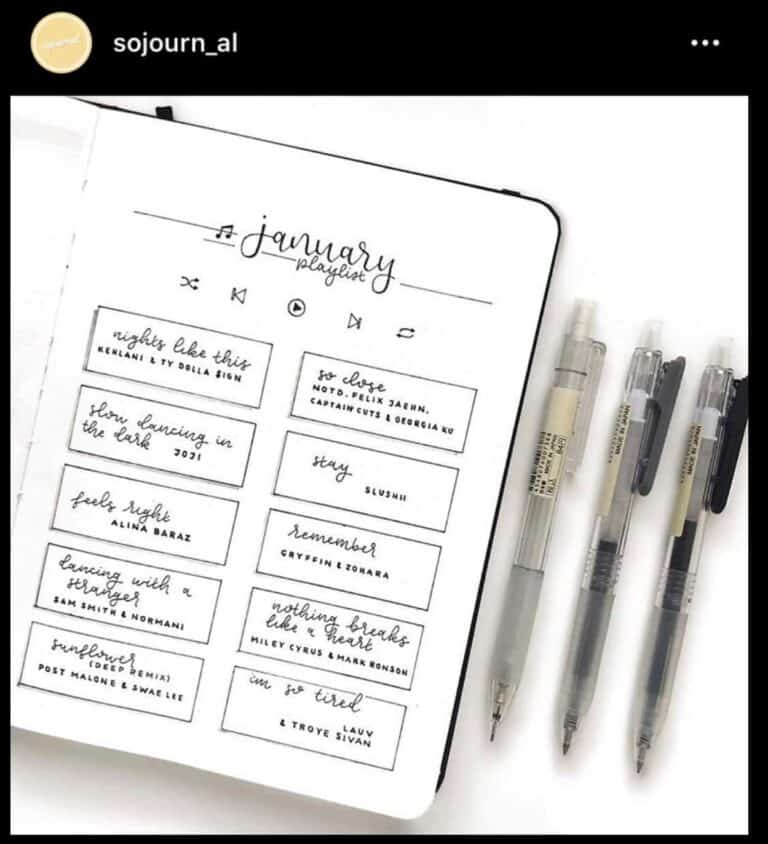 sojourn_al
january
playlist
nights like this
KEHLANI & TY DOLLA $IGN
slow dancing in
the dark JOJI
feels right
ALINA BARAZ
dancing with a
stranger
SAM SMITH & NORMANI
sunflower
(DEEP REMIX)
POST MALONE & SWAE LEE
so close
NOTD, FELIX JAEHN,
CAPTAIN CUTS & GEORGIA KU
stay
SLUSHII
remember
GRYFFIN & ZOHARA
nothing breaks
like a heart
MILEY CYRUS & MARK RONSON
im so tired
LAUV
& TROYE SIVAN
MADE IN JAPAN
MADE IN JAPAN